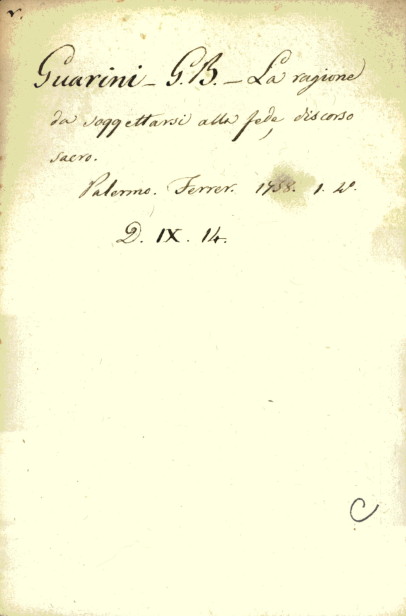 v.
Guarini - G.B. - La ragione
da soggettarsi alla fede, discorso
sacro.
Palermo. Ferrer. 1758. 1. 4º.
D. IX. 14.
C